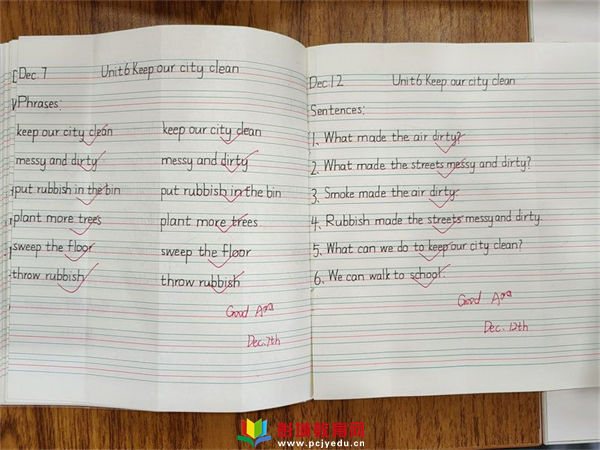 Dec. 7 Unit6 Keep our city clean
Phrases:
keep our city clean keep our city clean
messy and dirty messy and dirty
put rubbish in the bin put rubbish in the bin
plant more trees plant more trees
sweep the floor sweep the floor
throw rubbish throw rubbish
Good
Dec. 7th
Dec 12 Unit6 Keep our city clean
Sentences:
1. What made the air dirty?
2. What made the streets messy and dirty?
3. Smoke made the air dirty.
4. Rubbish made the streets messy and dirty.
5. What can we do to keep our city clean?
6. We can walk to school.
Good
Dec. 12th
www.pcjyedu.cn